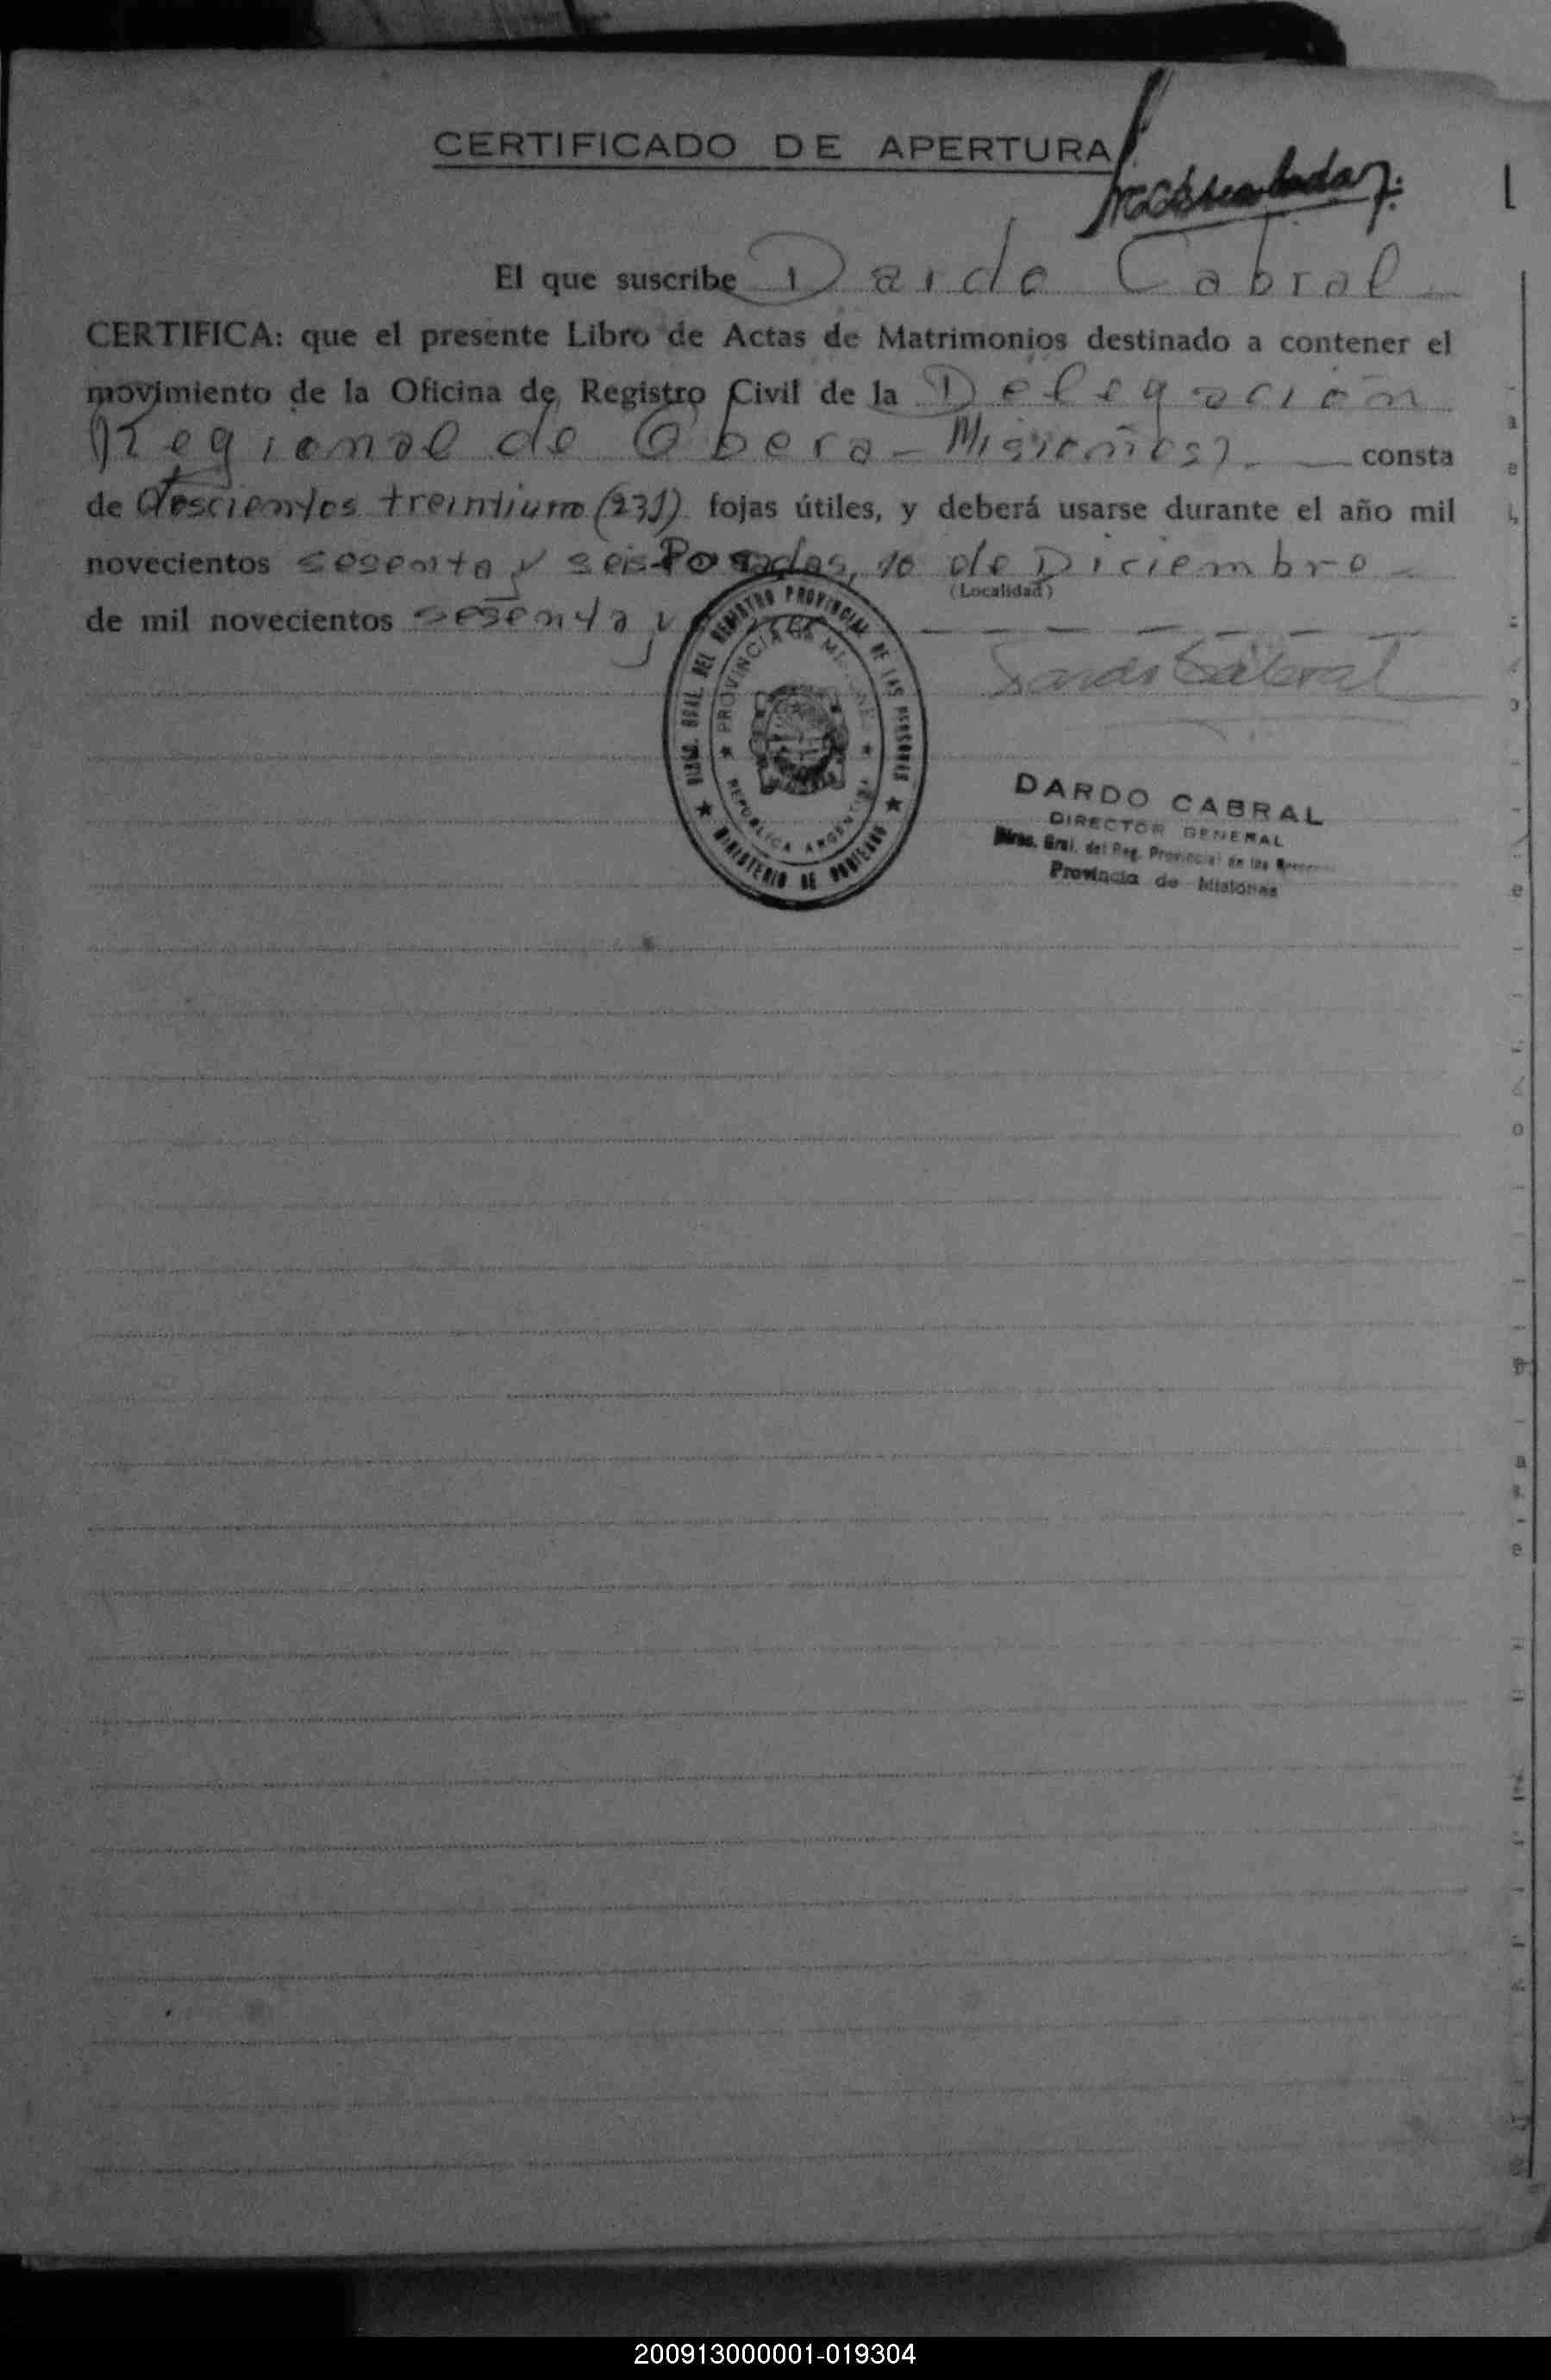 CERTIFICADO DE APERTURA
El que suscribe Dardo Cabral
CERTIFICA: que el presente Libro de Actas de Matrimonios destinado a contener el
movimiento de la Oficina de Registro Civil de la Delegación
Regional de Obera - Misiones). consta
de doscientos treintiuno (231) fojas útiles, y deberá usarse durante el año mil
novecientos sesenta y seis Posadas, 10 de Diciembre
(Localidad)
de mil novecientos sesenta y
Dardo Cabral
DIREC. GRAL. DEL REGISTRO PROVINCIAL DE LAS PERSONAS
PROVINCIA DE MISIONES
REPUBLICA ARGENTINA
MINISTERIO DE GOBIERNO
DARDO CABRAL
DIRECTOR GENERAL
Direc. Gral. del Reg. Provincial de las
Provincia de Misiones
200913000001-019304